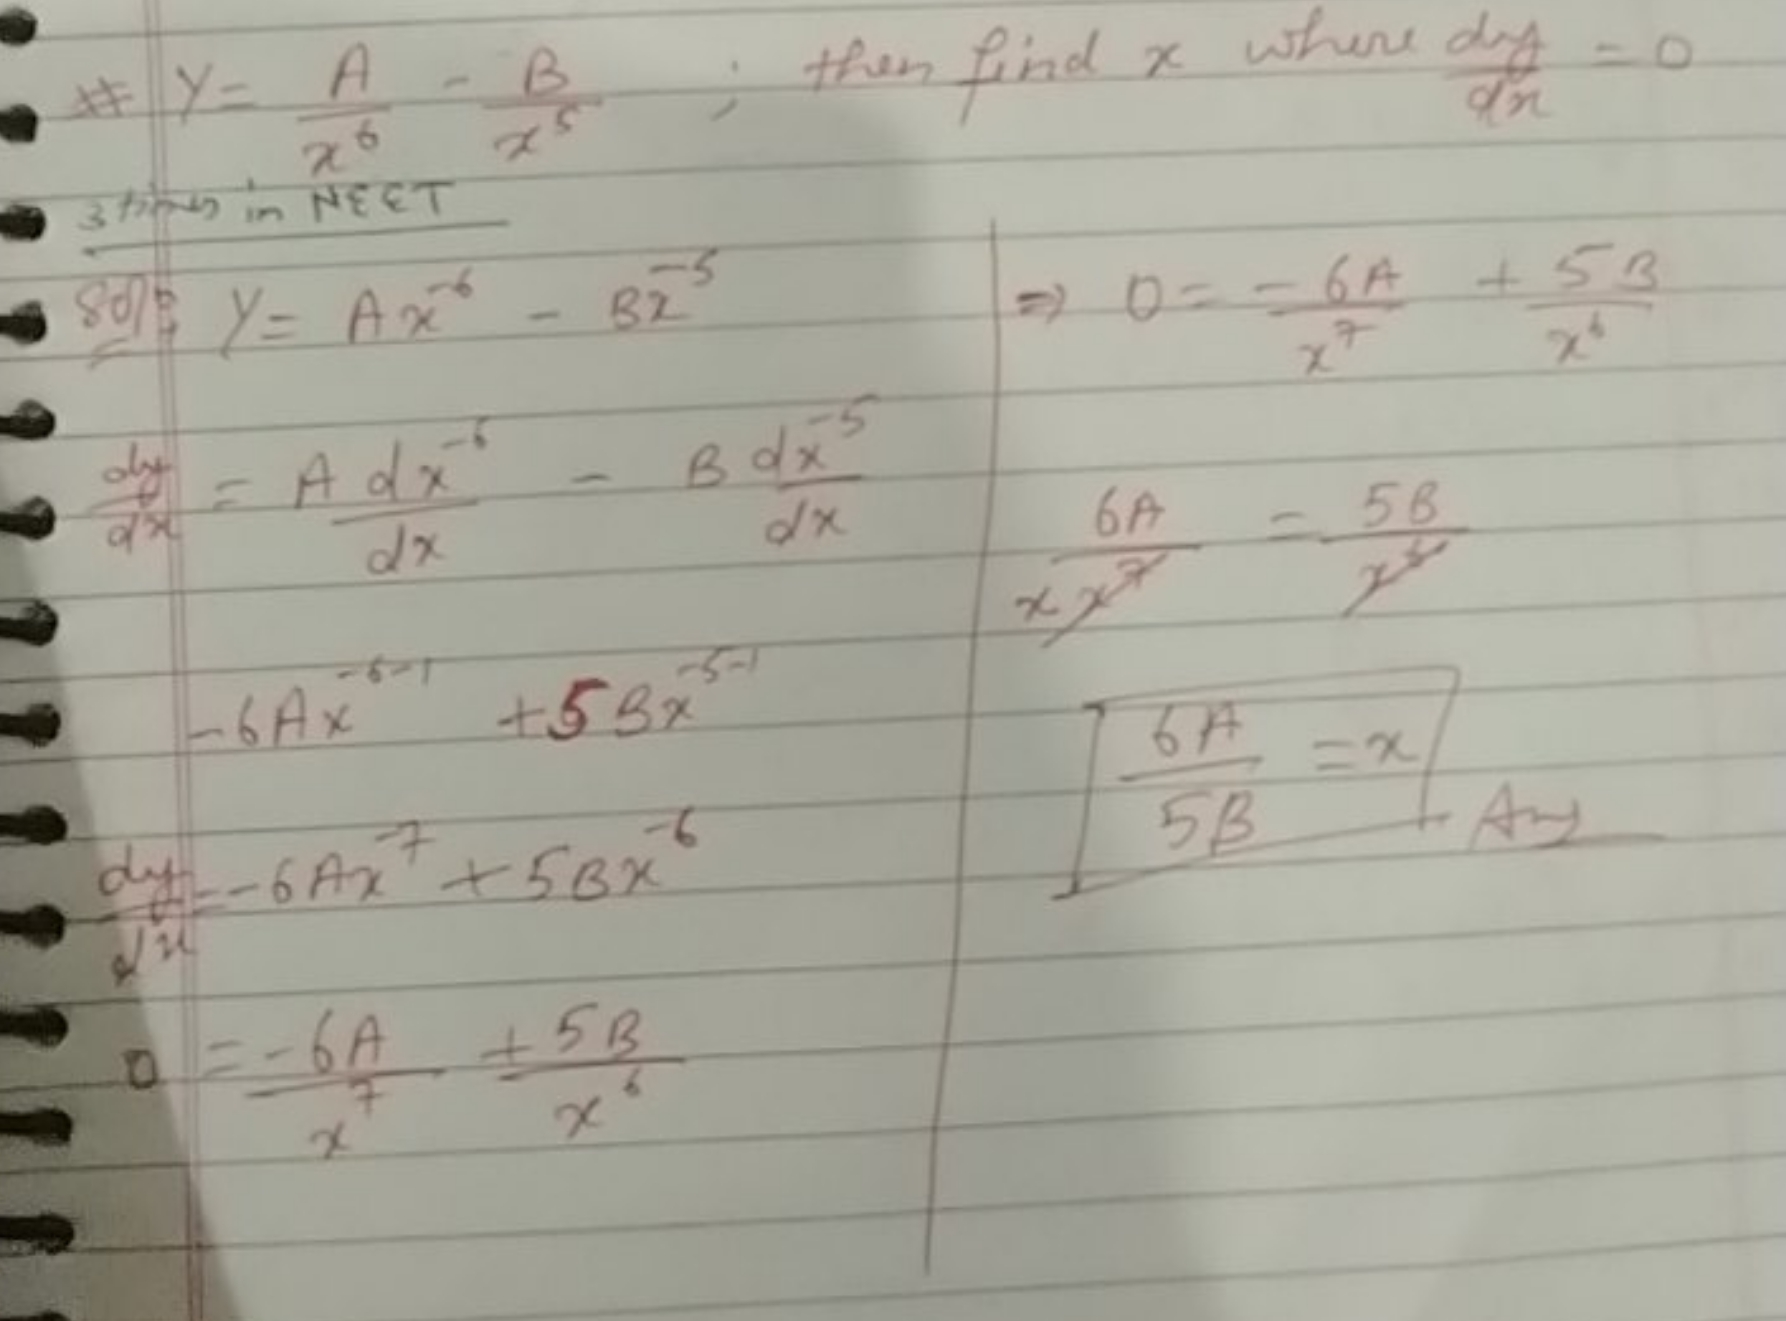 # Y = A/x⁶ - B/x⁵ ; then find x where dy/dx = 0
3 times in NEET
Solⁿ: Y = Ax⁻⁶ - Bx⁻⁵
dy/dx = A dx⁻⁶/dx - B dx⁻⁵/dx
-6Ax⁻⁶⁻¹ +5Bx⁻⁵⁻¹
dy/dx = -6Ax⁻⁷ + 5Bx⁻⁶
0 = -6A/x⁷ + 5B/x⁶
⇒ 0 = -6A/x⁷ + 5B/x⁶
6A/x x⁷ = 5B/x⁶
6A/5B = x Ans